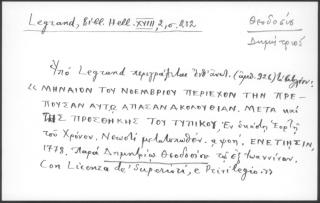 Legrand, Bibl. Hell. XVIII, 2, σ. 232
Θεοδοσίου
Δημήτριος
Ὑπό Legrand περιγράφεται (ἀριθ. 926)
« ΜΗΝΑΙΟΝ ΤΟΥ ΝΟΕΜΒΡΙΟΥ ΠΕΡΙΕΧΟΝ ΤΗΝ ΠΡΕ-
ΠΟΥΣΑΝ ΑΥΤΩ ΑΠΑΣΑΝ ΑΚΟΛΟΥΘΙΑΝ. ΜΕΤΑ καὶ
ΤΗΣ ΠΡΟΣΘΗΚΗΣ ΤΟΥ ΤΥΠΙΚΟΥ, Ἐν ἑκάστῃ Ἑορτῇ
τοῦ Χρόνου. Νεωστὶ μετατυπωθέν. ͵αψοή. ΕΝΕΤΙΗΣΙΝ,
1778. Παρὰ Δημητρίῳ Θεοδοσίου τῷ ἐξ Ἰωαννίνων.
Con Licenza de' Superiori, e Privilegio »